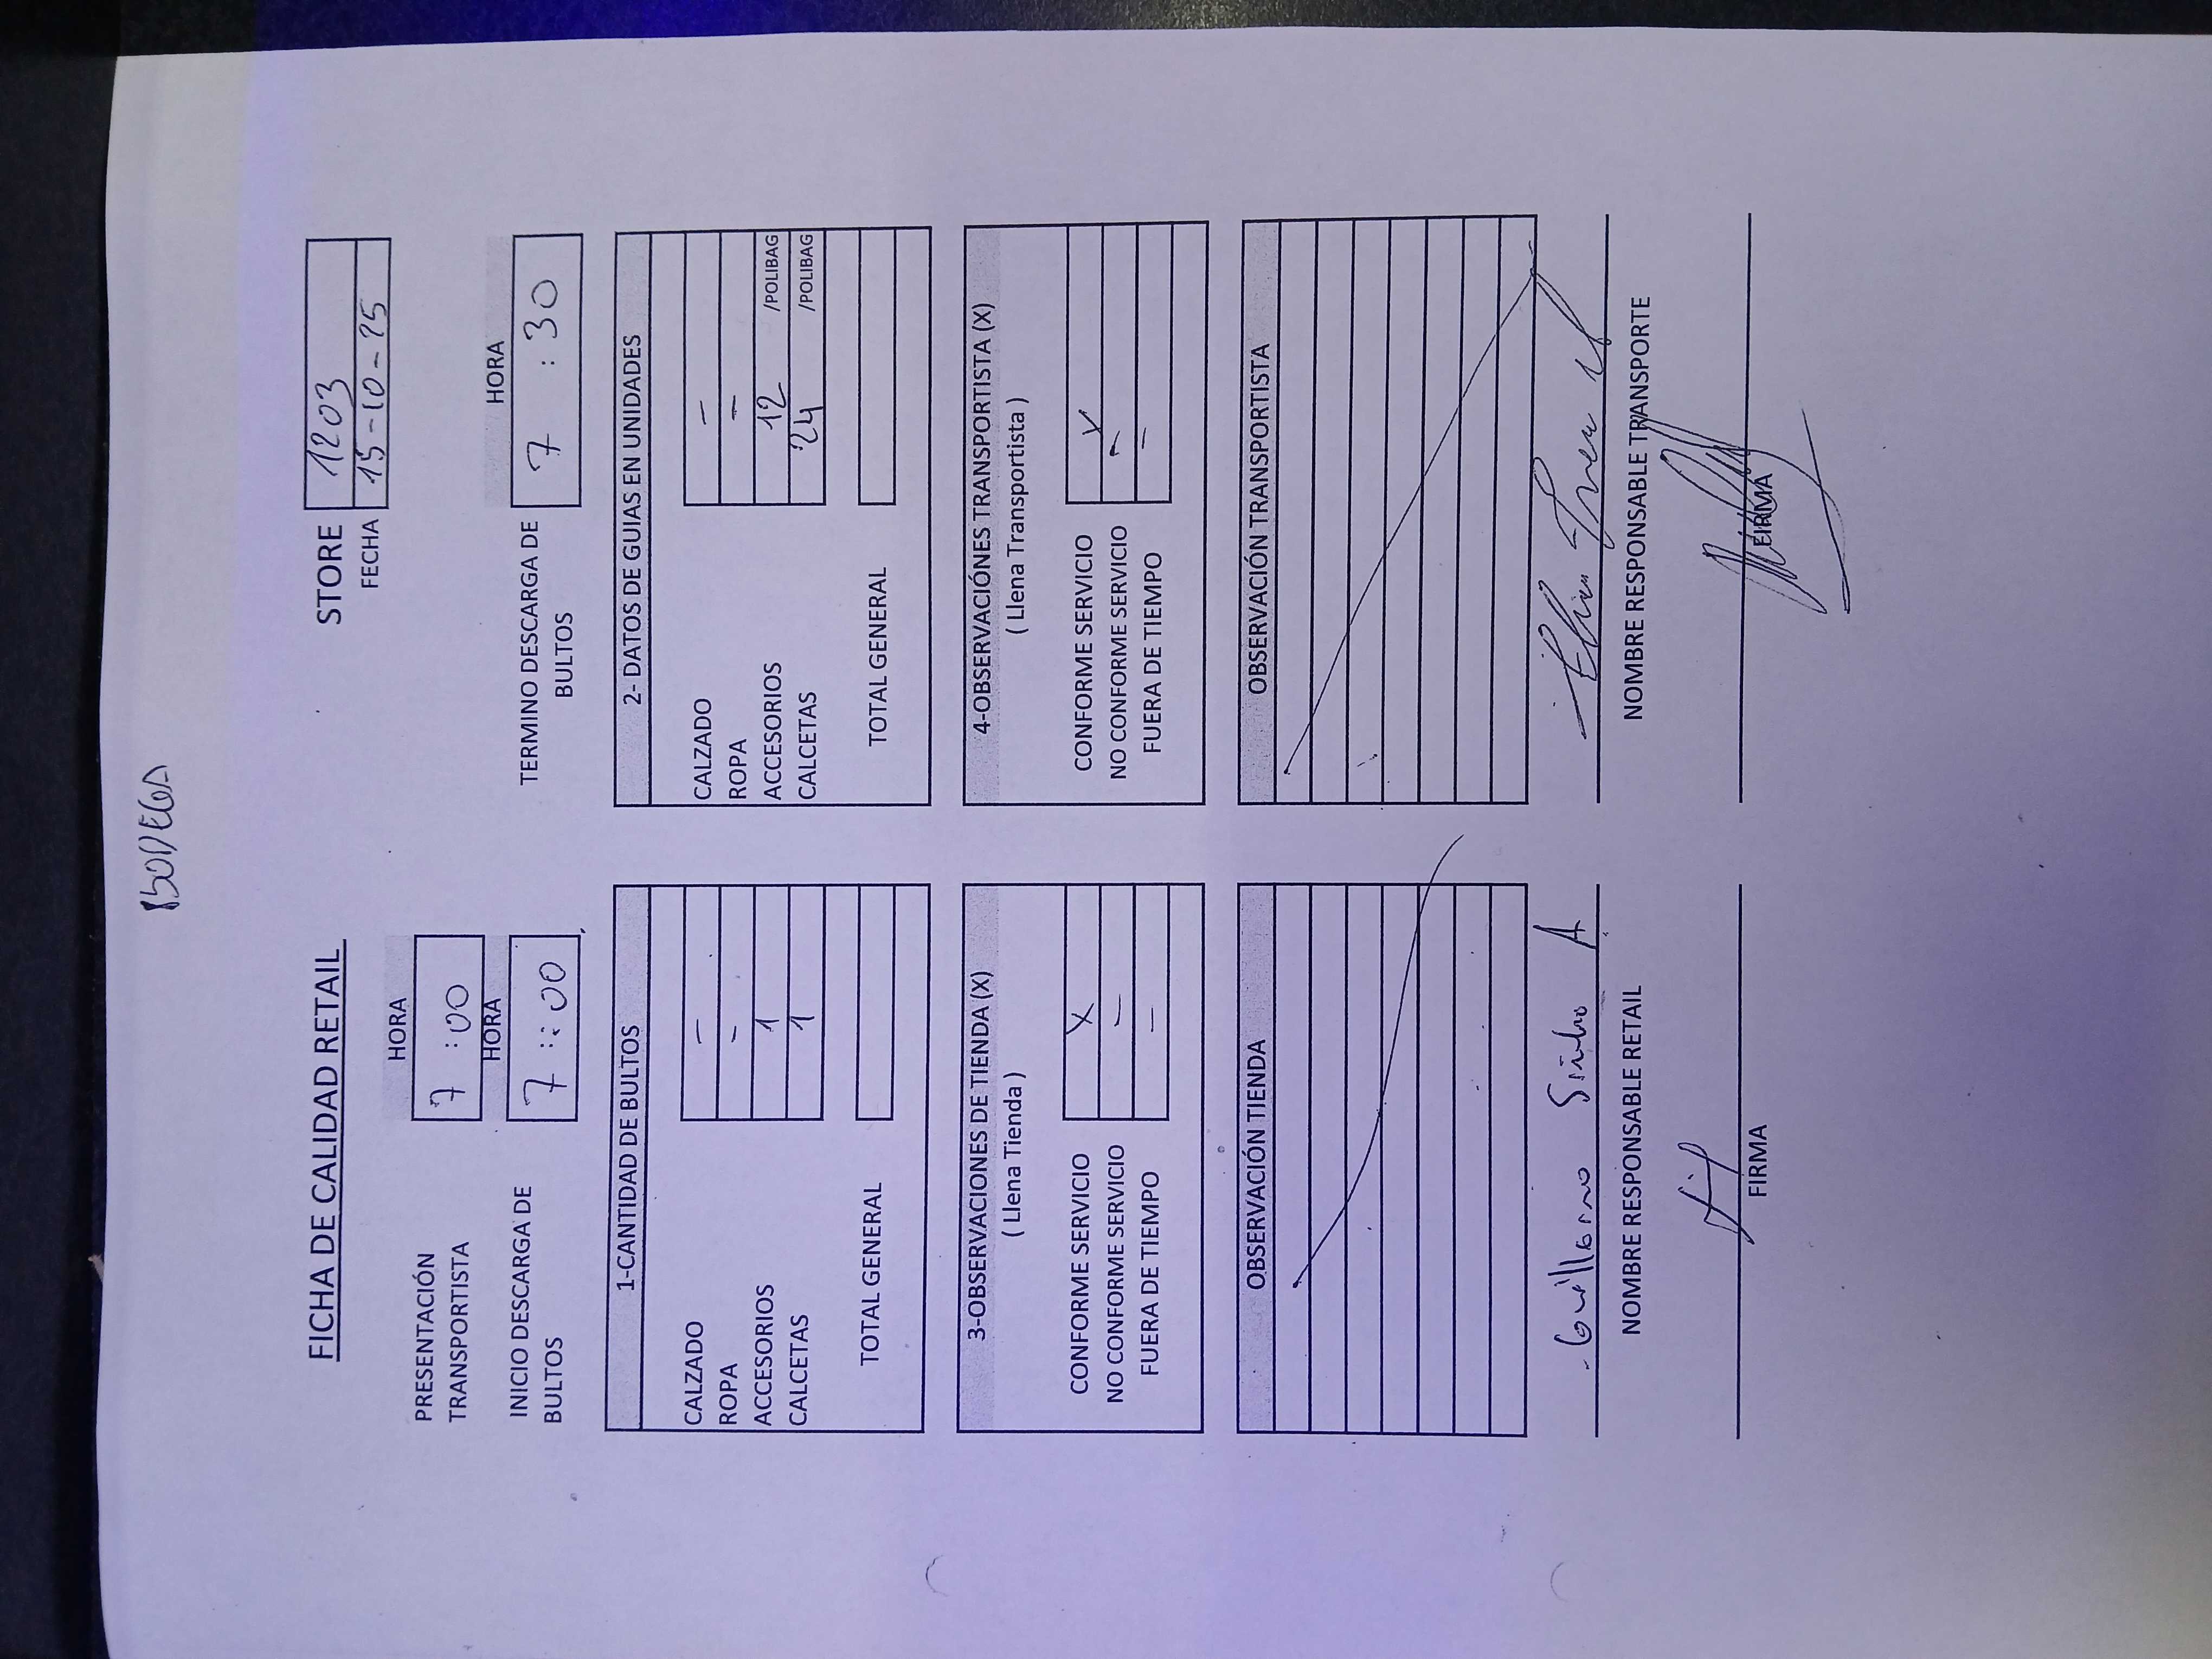 BODEGA
FICHA DE CALIDAD RETAIL
STORE 1203
FECHA 15-10-25
HORA
PRESENTACIÓN TRANSPORTISTA 7:00
HORA
INICIO DESCARGA DE BULTOS 7::00
HORA
TERMINO DESCARGA DE BULTOS 7:30
1-CANTIDAD DE BULTOS
CALZADO –
ROPA –
ACCESORIOS 1
CALCETAS 1
TOTAL GENERAL
2- DATOS DE GUIAS EN UNIDADES
CALZADO –
ROPA –
ACCESORIOS 12 /POLIBAG
CALCETAS 24 /POLIBAG
TOTAL GENERAL
3-OBSERVACIONES DE TIENDA (X)
( Llena Tienda )
CONFORME SERVICIO X
NO CONFORME SERVICIO –
FUERA DE TIEMPO –
4-OBSERVACIÓNES TRANSPORTISTA (X)
( Llena Transportista )
CONFORME SERVICIO X
NO CONFORME SERVICIO –
FUERA DE TIEMPO –
OBSERVACIÓN TIENDA
OBSERVACIÓN TRANSPORTISTA
Guillermo A
NOMBRE RESPONSABLE RETAIL
NOMBRE RESPONSABLE TRANSPORTE
FIRMA
FIRMA